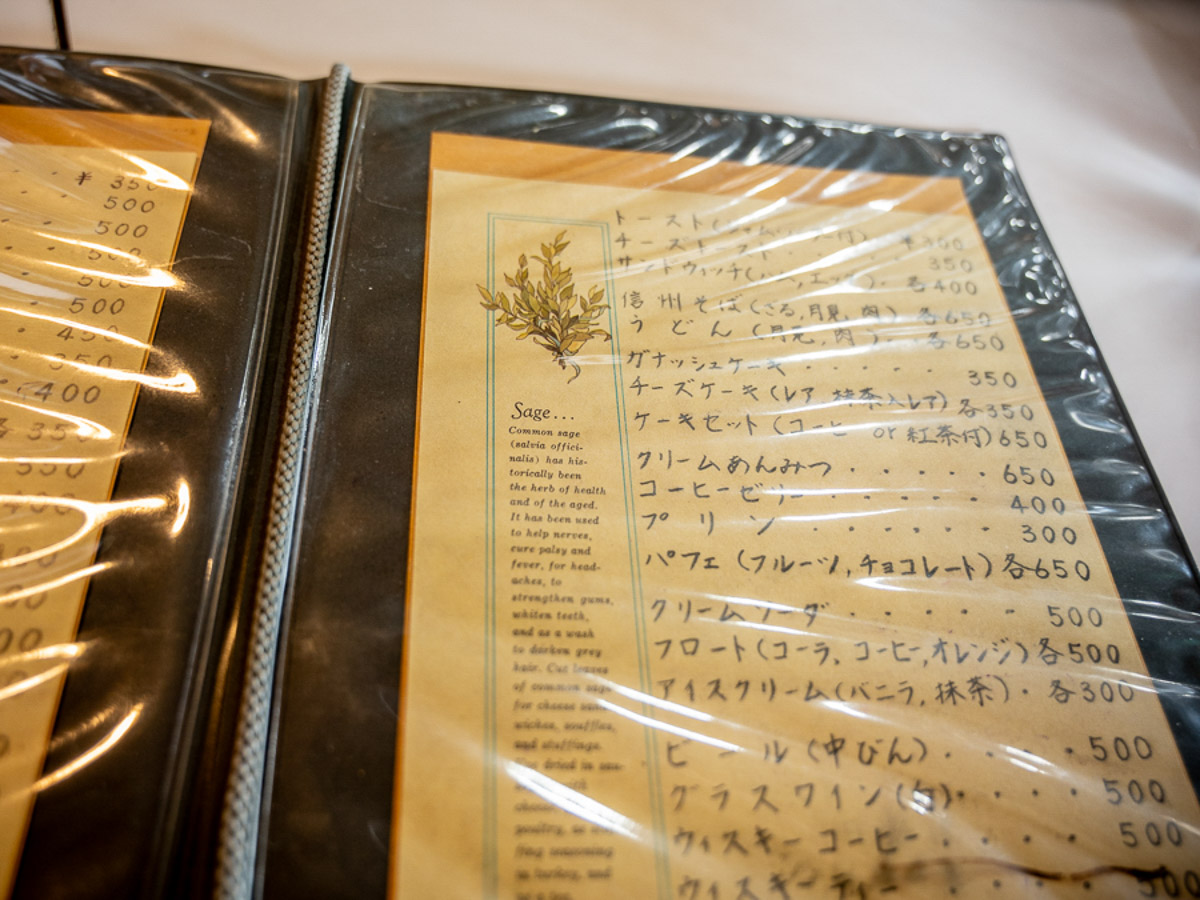 ¥ 350
500
500
500
500
500
450
350
400
各 350
550
400
トースト(ジャム,
チーズトースト・・・・350
サンドウィッチ(ハム,エッグ)・各400
信州そば(ざる,月見,肉) 各650
うどん(月見,肉)・・各650
ガナッシュケーキ・・・・・・350
チーズケーキ(レア,抹茶入レア)各350
ケーキセット(コーヒー or 紅茶付)650
クリームあんみつ・・・・・・650
コーヒーゼリー・・・・・・400
プリン・・・・・・300
パフェ(フルーツ,チョコレート)各650
クリームソーダ・・・・・・500
フロート(コーラ,コーヒー,オレンジ)各500
アイスクリーム(バニラ,抹茶)・各300
ビール(中びん)・・・・500
グラスワイン(白)・・・・500
ウィスキーコーヒー・・・・500
ウィスキーティー・・・・500
Sage...
Common sage
(salvia offici-
nalis) has his-
torically been
the herb of health
and of the aged.
It has been used
to help nerves,
cure palsy and
fever, for head-
aches, to
strengthen gums,
whiten teeth,
and as a wash
to darken grey
hair. Cut leaves
of common sage
for cheese sand-
wiches, souffles,
and stuffings.
Use dried in sau-
poultry, as
fing seasoning
in turkey, and